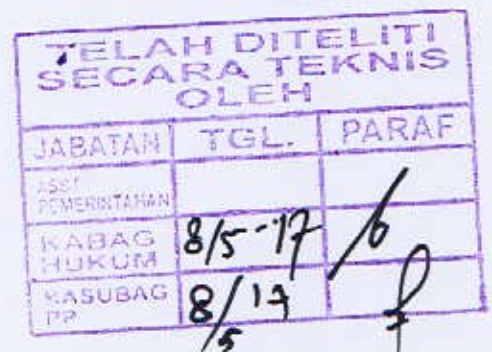 TELAH DITELITI
SECARA TEKNIS
OLEH
JABATAN TGL. PARAF
ASST
PEMERINTAHAN
KABAG 8/5-17
HUKUM
KASUBAG 8/5 17
PP